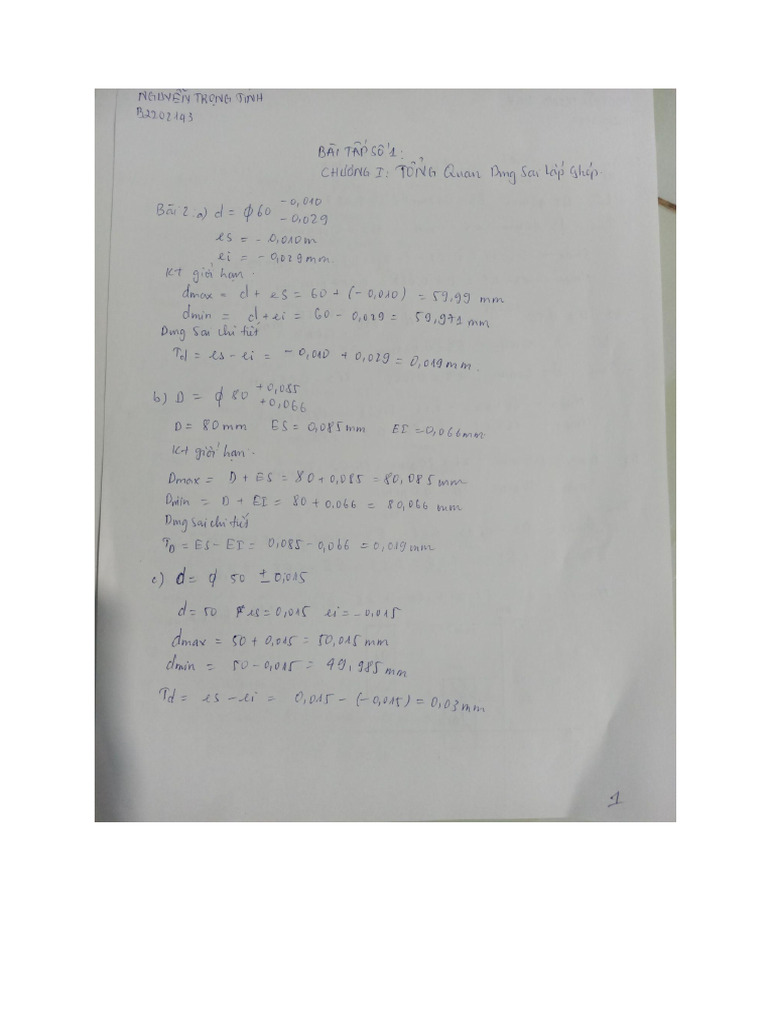 NGUYỄN TRỌNG TINH
B2202193
BÀI TẬP SỐ 1:
CHƯƠNG I: TỔNG Quan Dung Sai Lắp Ghép.
Bài 2: a) d = ϕ60 -0,010 -0,029
es = -0,010m
ei = -0,029mm.
KT giới hạn.
dmax = d + es = 60 + (-0,010) = 59,99 mm
dmin = d + ei = 60 - 0,029 = 59,971 mm
Dung Sai chi tiết
Td = es - ei = -0,010 + 0,029 = 0,019mm.
b) D = ϕ 80 +0,085 +0,066
D = 80mm ES = 0,085mm EI = 0,066mm
KT giới hạn.
Dmax = D + ES = 80 + 0,085 = 80,085mm
Dmin = D + EI = 80 + 0.066 = 80,066mm
Dung sai chi tiết
TD = ES - EI = 0,085 - 0,066 = 0,019mm
c) d = ϕ 50 ± 0,015
d = 50 es = 0,015 ei = -0,015
dmax = 50 + 0,015 = 50,015mm
dmin = 50 - 0,015 = 49,985mm
Td = es - ei = 0,015 - (-0,015) = 0,03mm
1